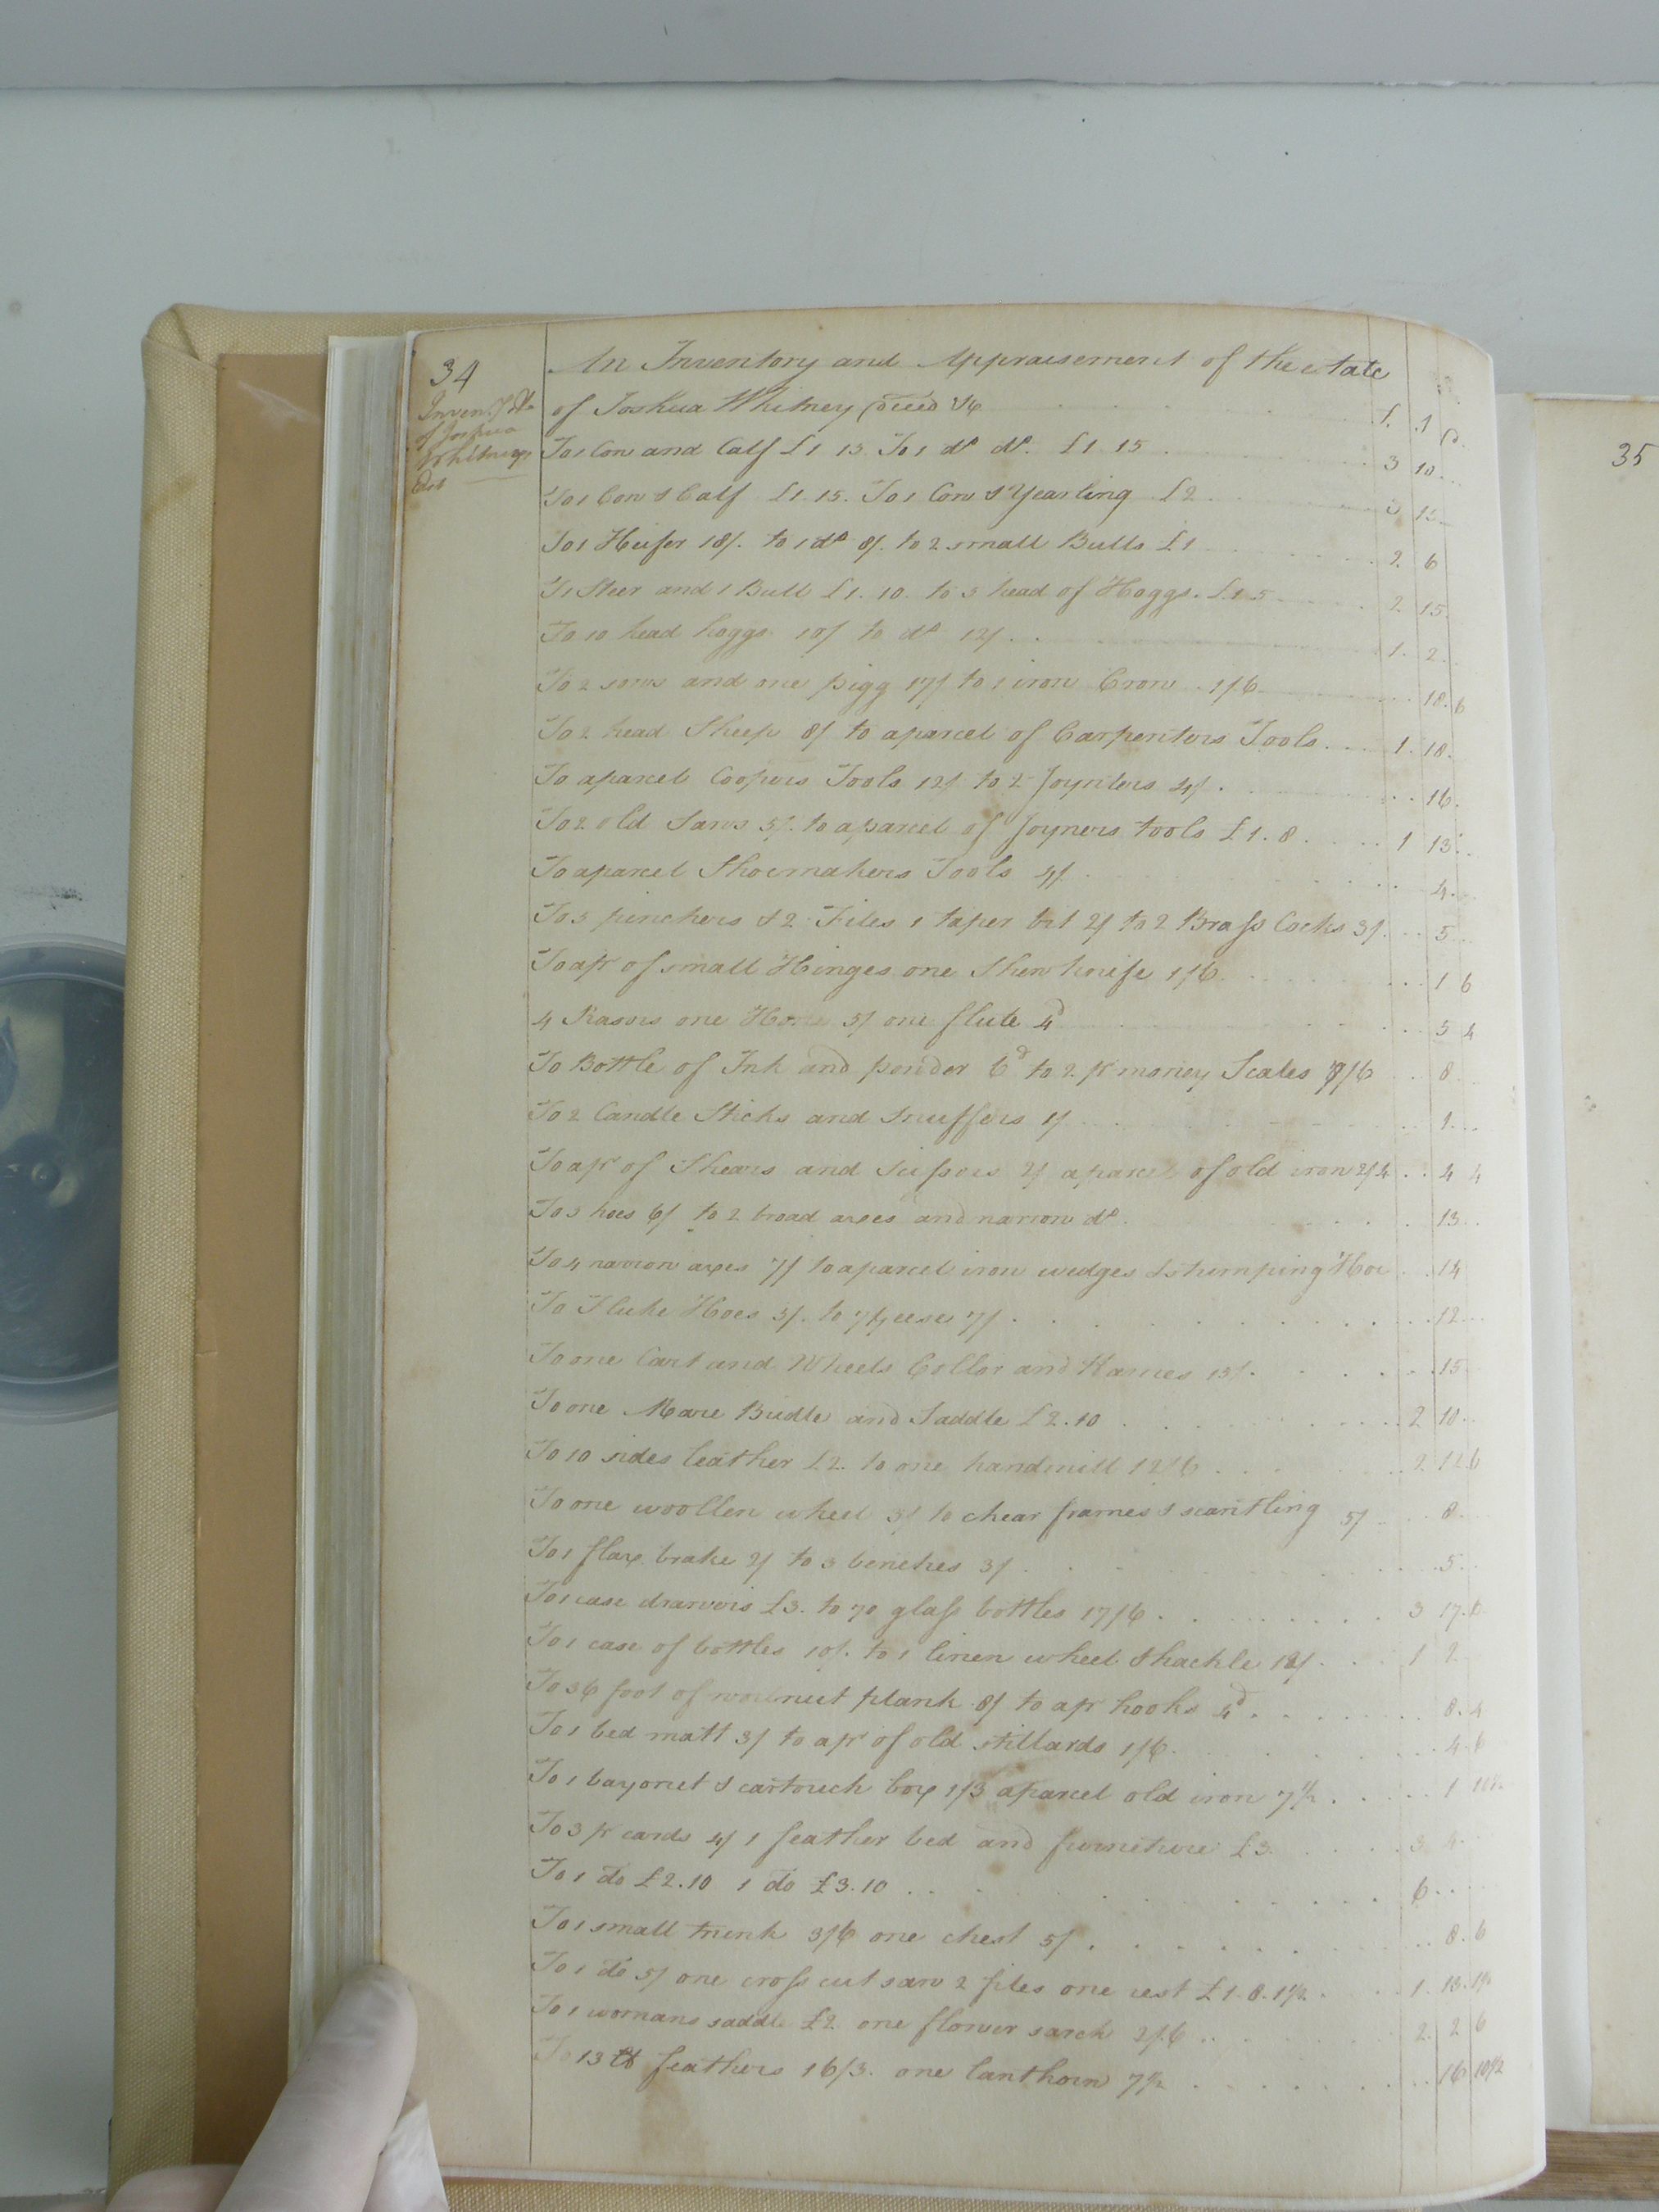 34
An Inventory and Appraisement of the estate
Inven.
of Joshua
Whitneys
Est
of Joshua Whitney Deced Viz £. s D.
To 1 Cow and Calf £1 15 To 1 do do. £1 15 3 10
To 1 Cow & Calf £1.15. To 1 Cow & Yearling £2 3 15
To 1 Heifer 18/. to 1 do 8/. to 2 small Bulls £1 2 6
To 1 Steer and 1 Bull £1.10. to 5 head of Hoggs. £1 5 2 15
To 10 head hoggs 10/ to do 12/ 1 2
To 2 sows and one pigg 17/ to 1 iron Crow 1/6 18 6
To 2 head Sheep 8/ to a parcel of Carpenters Tools 1 18
To a parcel Coopers Tools 12/ to 2 Joynters 4/ 16
To 2 old Saws 5/. to a parcel of Joyners tools £1.8 1 13
To a parcel Shoemakers Tools 4/ 4
To 3 pinchers & 2 Files 1 taper bit 2/ to 2 Brass Cocks 3/ 5
To a pr of small Hinges one Shew knife 1/6 1 6
4 Rasors one Hone 5/ one flute 4d 5 4
To Bottle of Ink and powder 6d to 2 pr money Scales 7/6 8
To 2 Candle Sticks and Snuffers 1/ 1
To a pr of Shears and Scissors 2/ a parcel of old iron 2/4 4 4
To 3 hoes 6/ to 2 broad axes and narrow do. 13
To 4 narrow axes 7/ to a parcel iron wedges & stumping Hoe 14
To Fluke Hoes 5/. to 7 geese 7/ 12
To one Cart and Wheels Collor and Hames 15/ 15
To one Mare Bridle and Saddle £2.10 2 10
To 10 sides leather £2. to one handmill 12/6 2 12 6
To one woollen wheel 3/ to chear frames & scantling 5/ 8
To 1 flax brake 2/ to 3 benches 3/ 5
To 1 case drawers £3. to 70 glass bottles 17/6 3 17 6
To 1 case of bottles 10/. to 1 linen wheel & hackle 12/ 1 2
To 36 foot of wallnut plank 8/ to a pr hooks 4d 8 4
To 1 bed matt 3/ to a pr of old stillards 1/6 4 6
To 1 bayonet & cartouch box 1/3 a parcel old iron 7½ 1 10½
To 3 pr cards 4/ 1 feather bed and furneture £3 3 4
To 1 do £2.10 1 do £3.10 6
To 1 small trunk 3/6 one chest 5/ 8 6
To 1 do 5/ one cross cut saw 2 files one rest £1.8.1½ 1 13 1½
To 1 womans saddle £2 one flower sarch 2/6 2 2 6
To 13 lb feathers 16/3. one lanthorn 7½ 16 10½
35